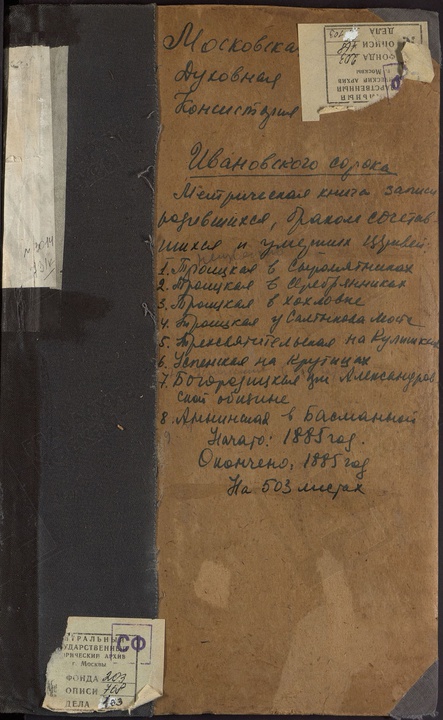 Московская
Духовная
Консистория
Ивановского сорока
Метрическая книга записи
родившихся, браком сочетав
шихся и умерших церквей:
1. Троицкая в Сыромятниках
2. Троицкая в Серебрянниках
3. Троицкая в Хохловке
4. Троицкая у Салтыкова моста
5. Трехсвятительская на Кулишках
6. Успенская на Крутицах
7. Богородицкая при Александров
ской общине
8. Аннинская в Басманной
Начато: 1885 год.
Окончено: 1885 год
На 503 листах
ЦЕНТРАЛЬНЫЙ
ГОСУДАРСТВЕННЫЙ
ИСТОРИЧЕСКИЙ АРХИВ
г. Москвы
СФ
ФОНДА 203
ОПИСИ 768
ДЕЛА
ГОСУДАРСТВЕННЫЙ
ИЧЕСКИЙ АРХИВ
г. Москвы
ФОНДА 203
ОПИСИ
ДЕЛА